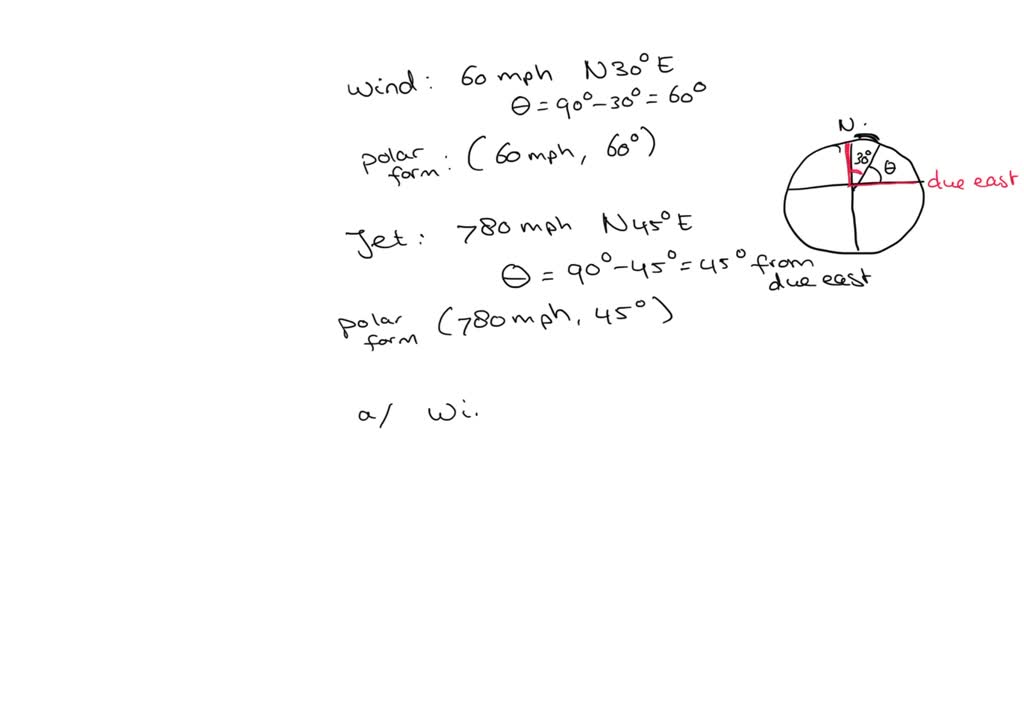 wind: 60 mph N30°E
θ = 90° - 30° = 60°
polar form: (60 mph, 60°)
N
30°
θ
due east
Jet: 780 mph N45°E
θ = 90° - 45° = 45° from due east
polar form (780 mph, 45°)
a/ Wi.